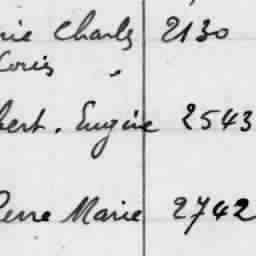 rie Charles 2130
Louis "
bert. Eugène 2543
Pierre Marie 2742